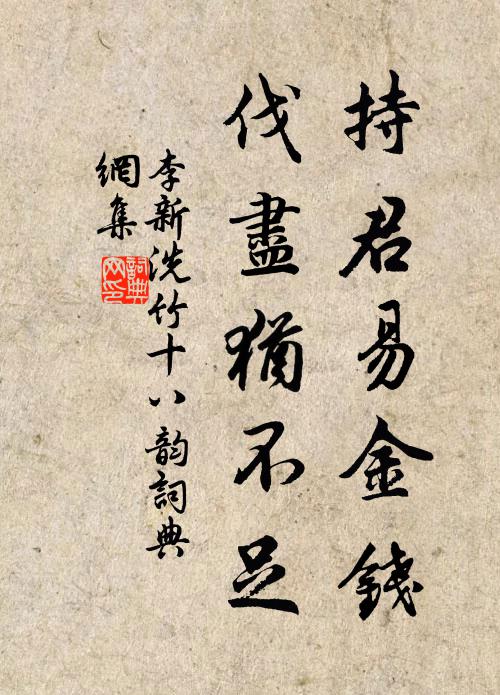 持君易金錢
伐盡猶不足
李新洗竹十八韵詞典
網集
詞典
网印